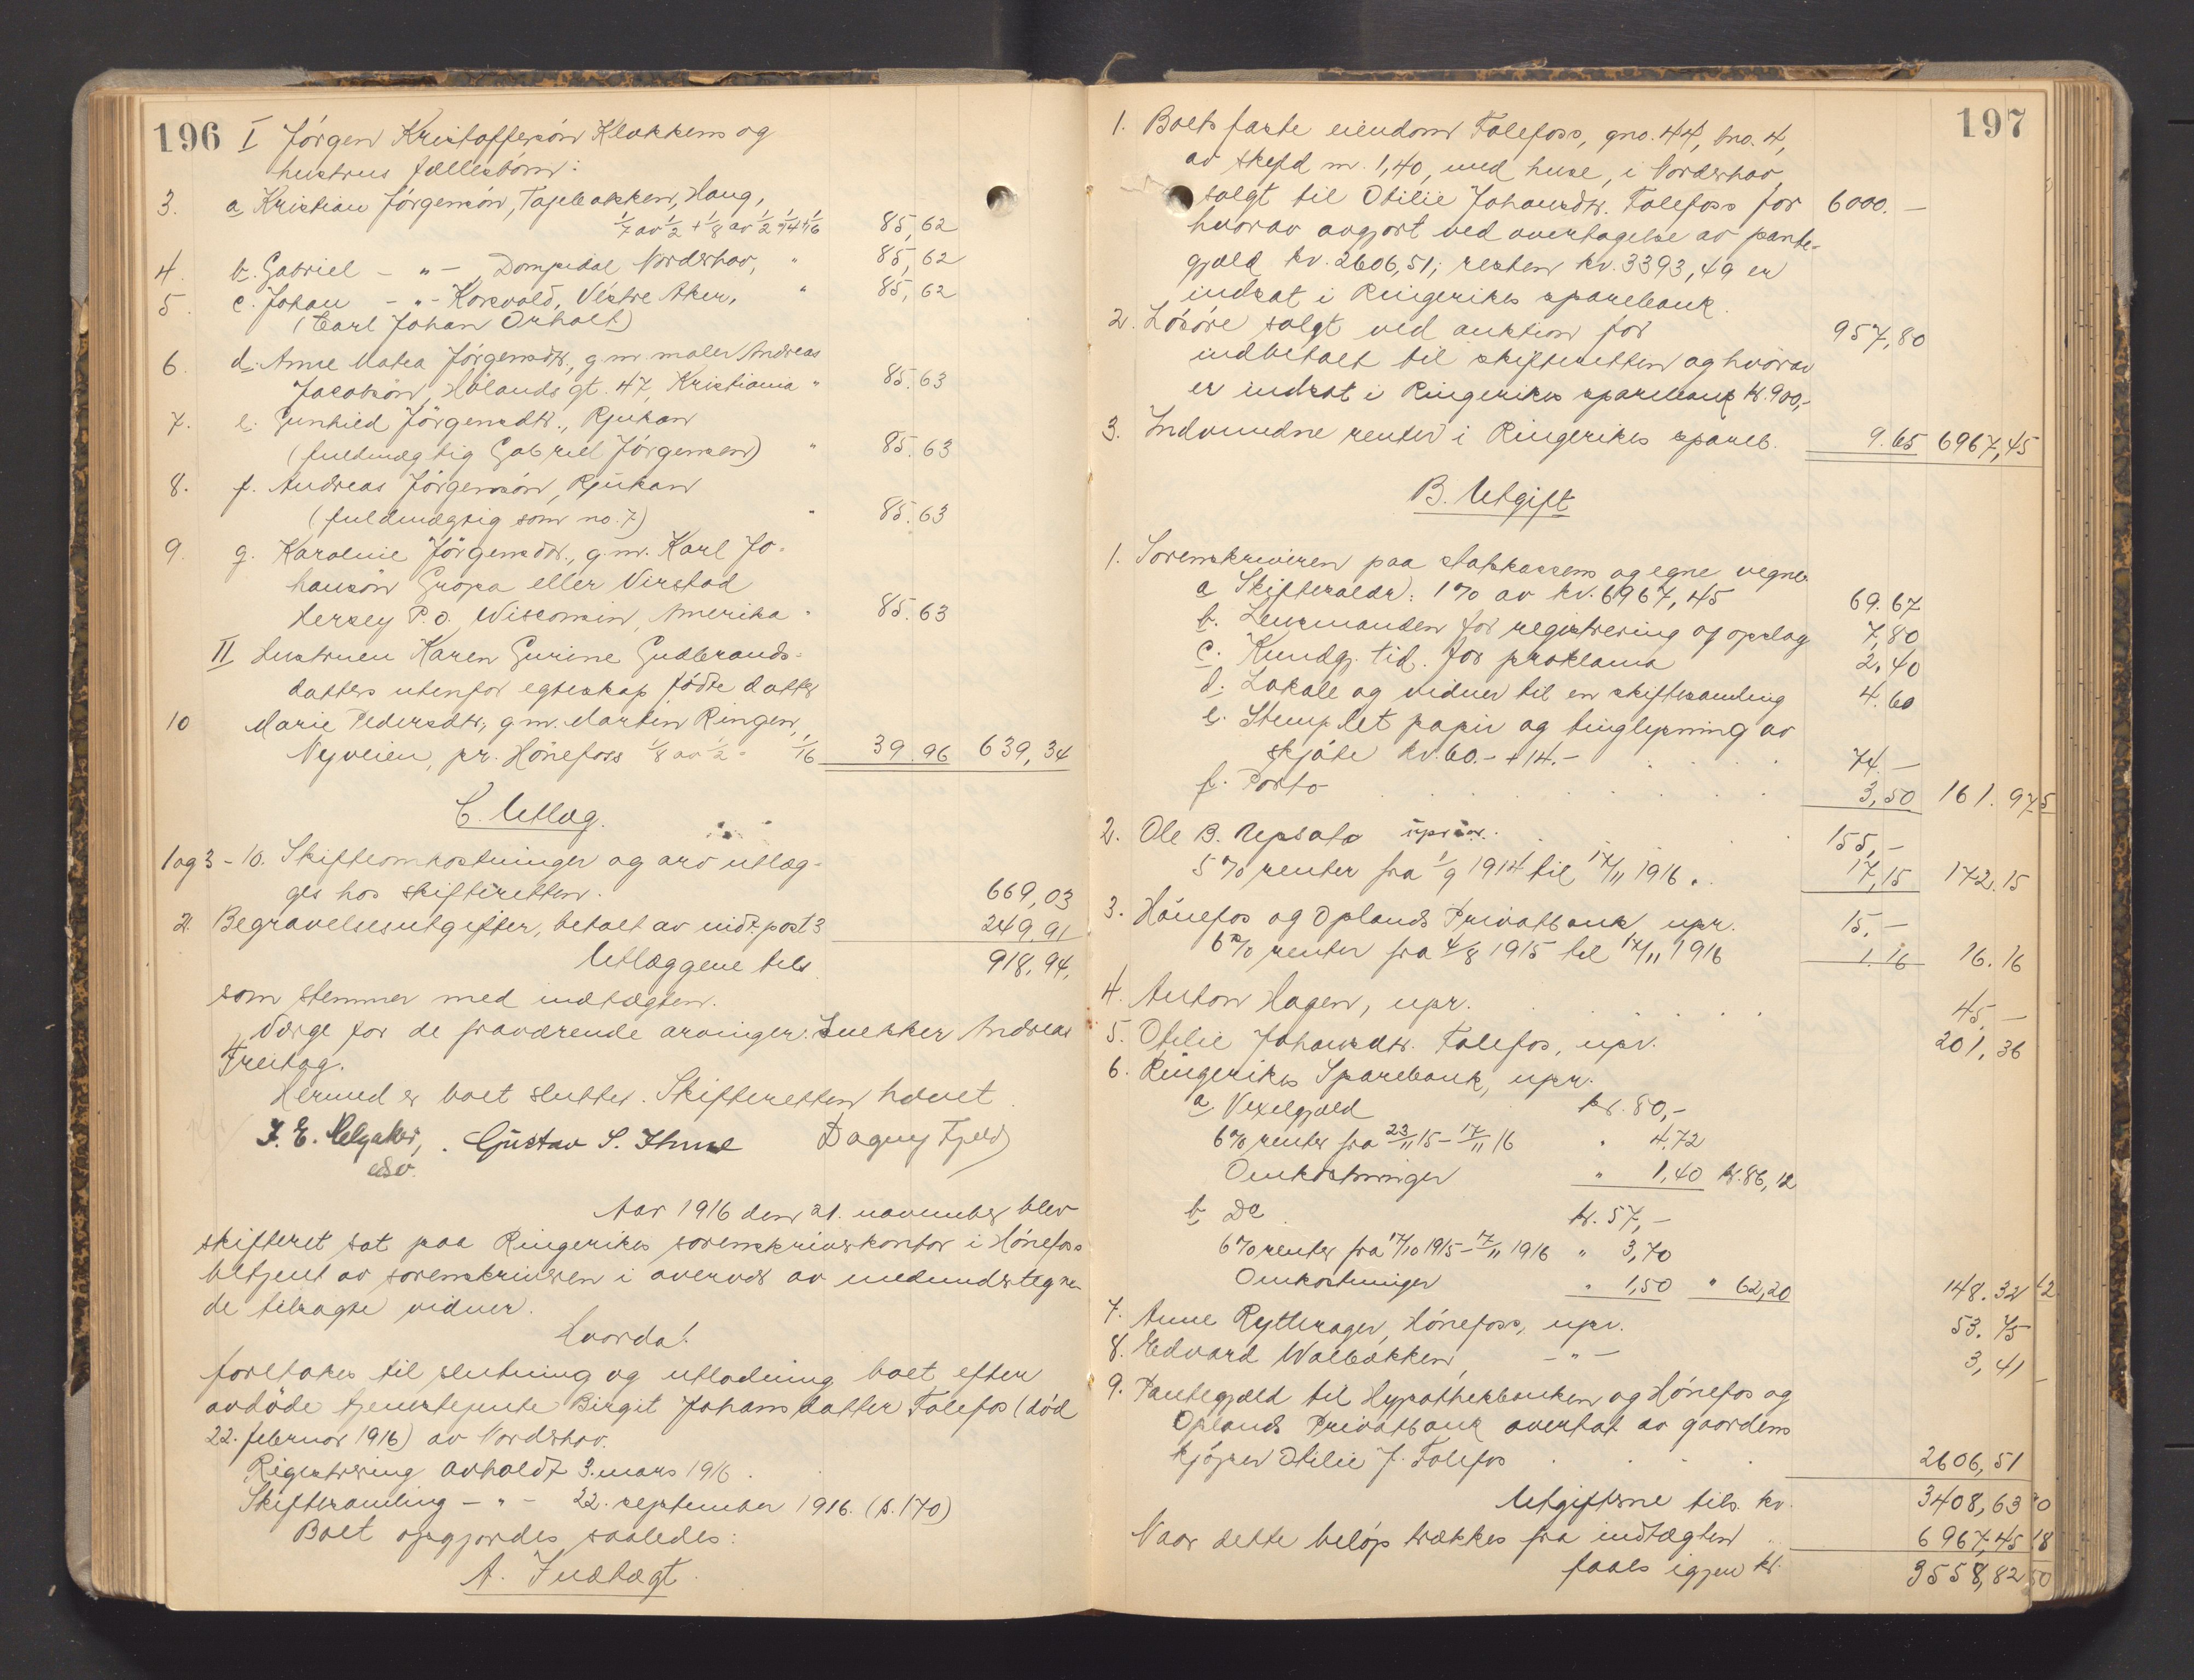 196
I Jörgen Kristoffersön Klækkens og
hustrus fællesbörn:
3. a Kristian Jörgensön, Tajebakken, Haug,
1/7 av 1/2 + 1/8 av 1/2 = 1/14 + 1/16 85,62
4. b. Gabriel - " - , Dompidal Norderhov, " 85,62
5. c. Johan - " - Korsvold, Vestre Aker, " 85,62
(Carl Johan Orholt)
6. d. Anne Matea Jörgensdtr., g.m. maler Andreas
Jacobsön, Hölands gt. 47, Kristiania " 85.63
7. e. Gunhild Jörgensdtr., Rjukan
(fuldmægtig Gabriel Jörgensen) " 85.63
8. f. Andreas Jörgensön, Rjukan
(fuldmægtig som no. 7) " 85.63
9. g. Karoline Jörgensdtr., g.m. Karl Jo-
hansön Gropa eller Virstad
Hersey P.O. Wisconsin, Amerika " 85.63
II Hustruen Karen Gurine Gudbrands-
datters utenfor egteskap födte datter
10 Marie Pedersdtr., g.m. Martin Ringen,
Nyveien, pr. Hönefoss 1/8 av 1/2 = 1/16 39.96 639,34
C. Utlæg.
1 og 3 - 10. Skifteomkostninger og arv utlæg-
ges hos skifteretten. 669,03
2. Begravelsesutgifter, betalt av indt. post 3 249.91
Utlæggene tils. 918,94,
som stemmer med indtægten.
Værge for de fraværende arvinger: Snekker Andreas
Freitag.
Hermed er boet sluttet. Skifteretten hævet.
Gustav S. Dagny Fjeld
Aar 1916 den 21. november blev
skifteret sat paa Ringerikes sorenskriverkontor i Hönefoss
betjent av sorenskriveren i overvær av medundertegne-
de tilsagte vidner.
Hvorda:
foretokes til slutning og utlodning boet efter
avdöde tjenestejente Birgit Johansdatter Folefos (död
22. februar 1916) av Norderhov.
Registrering avholdt 3. mars 1916.
Skiftesamling - " - 22. september 1916. (s. 170)
Boet opgjordes saaledes:
A. Indtægt.
197
1. Boets faste eiendom Folefoss, gno. 44, bno. 4,
av skyld m. 1,40, med huse, i Norderhov,
solgt til Otilie Johansdtr. Folefoss for 6000. —
hvorav avgjort ved overtagelse av pante-
gjæld kr. 2606,51; resten kr. 3393,49 er
indsat i Ringerikes sparebank.
2. Lösöre solgt ved auktion for 957,80
indbetalt til skifteretten og hvorav
er indsat i Ringerikes sparebank kr. 900,-
3. Indvundne renter i Ringerikes spareb. 9.65 6967,45
B. Utgift
1. Sorenskriveren paa statskassens og egne vegne
a Skifteraadr: 1% av kr. 6967,45 69.67
b. Lensmanden for registrering og opslag 7,80
c. Kundgj. tid. for proklama 2.40
d. Lokale og vidner til en skiftesamling 4.60
e. Stemplet papir og tinglysning av
skjöte kr. 60.- + 14.- 74.—
f. Porto 3,50 161.975
2. Ole B. Upsata upr. 155,-
5% renter fra 1/9 1914 til 17/11 1916. 17,15 172.15
3. Hönefos og Oplands Privatbank, upr. 15.-
6% renter fra 4/8 1915 til 17/11 1916 1.16 16.16
4. Anton Hagen, upr. 45.—
5. Otilie Johansdtr. Folefos, upr. 201,36
6. Ringerikes Sparebank, upr.
a Vexelgjæld kr. 80,-
6% renter fra 23/11 15 - 17/11 16 " 4,72
Omkostninger " 1,40 kr. 86,12
b Do kr. 57,-
6% renter fra 17/10 1915 - 17/11 1916 " 3,70
Omkostninger " 1,50 " 62,20 148.32
7. Anne Rytterager, Hönefoss, upr. 53.75
8. Edvard Wælbækken, - " - 3,41
9. Pantegjæld til Hypothekbanken og Hönefos og
Oplands Privatbank overtat av gaardens
kjöper Otilie J. Folefos 2606,51
Utgifterne tils. kr. 3408,63
Naar dette belöp trækkes fra indtægten 6967,45
faaes igjen kr. 3558,82